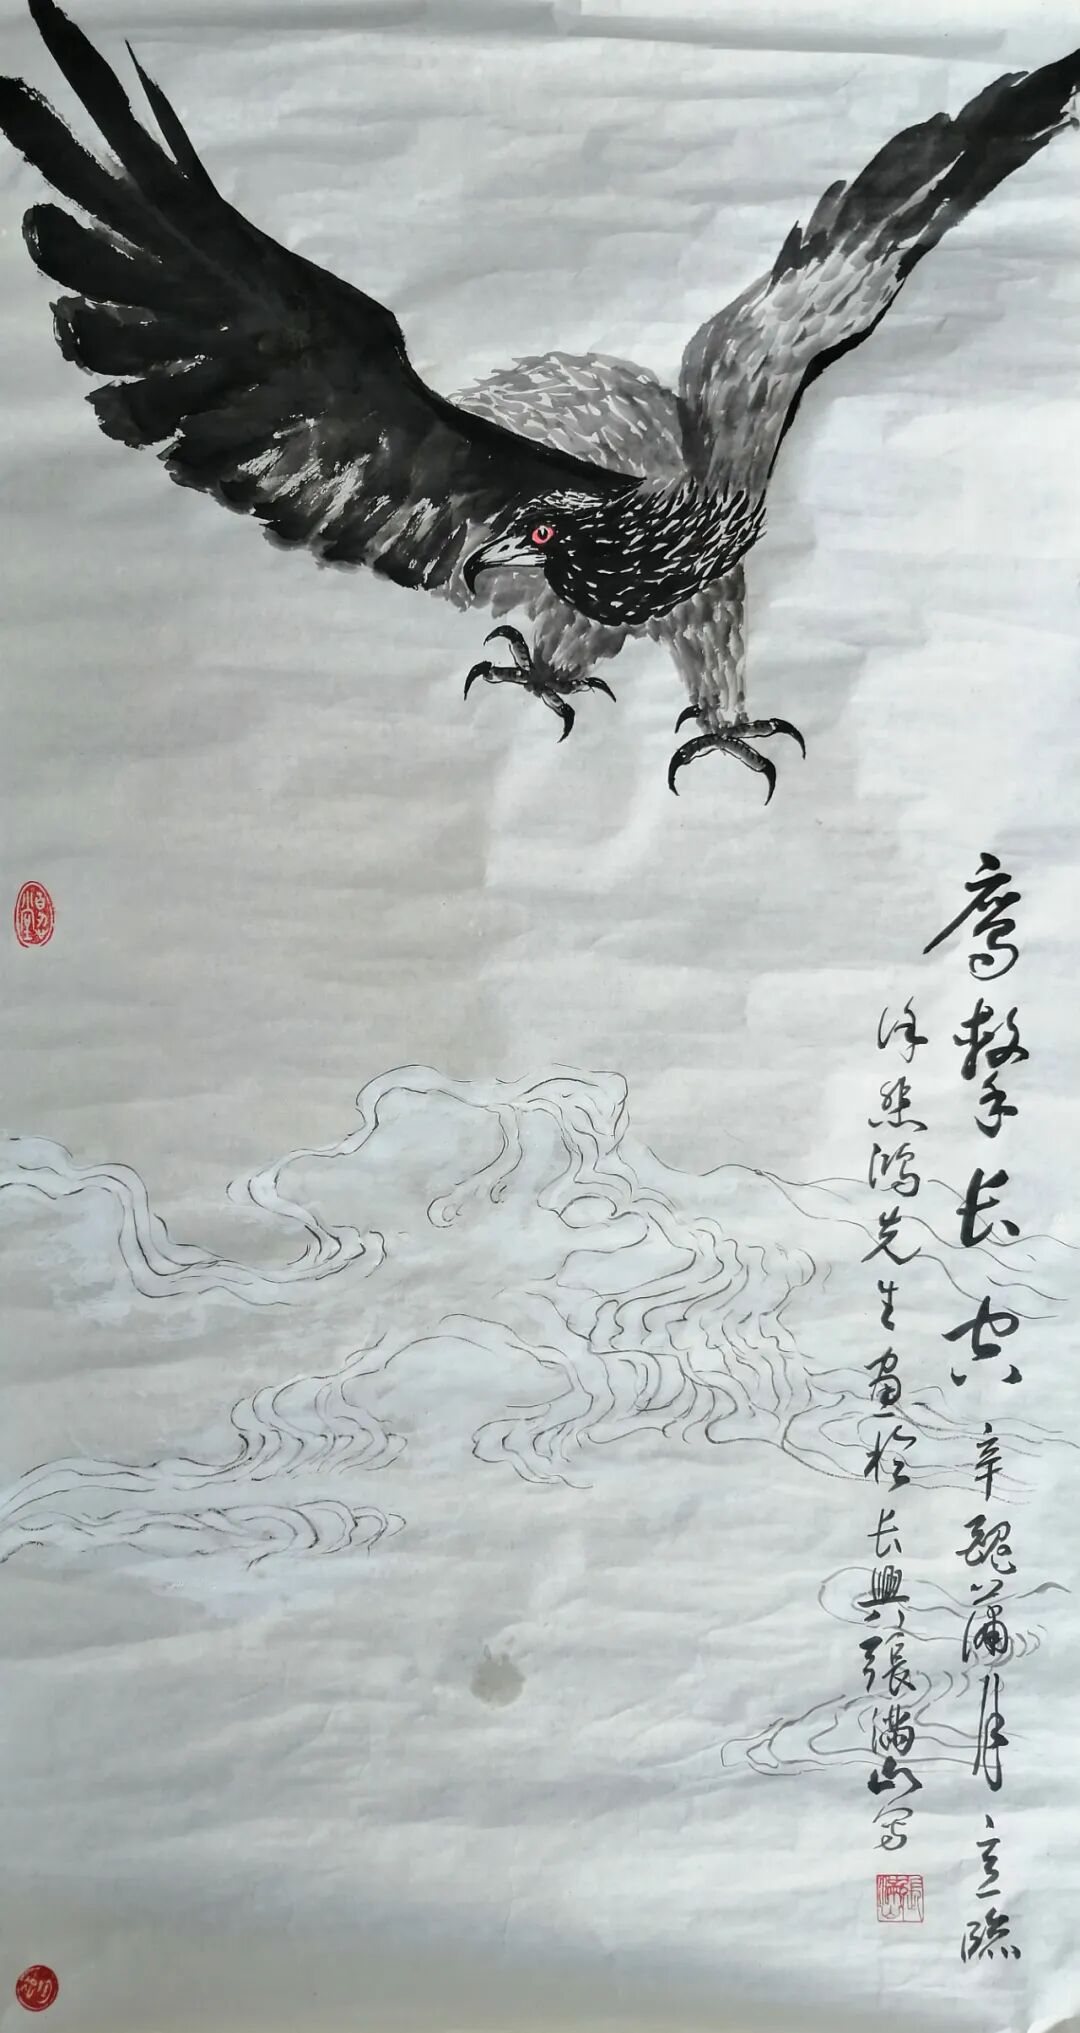 鹰击长空 辛丑蒲月意临
徐悲鸿先生画於长兴张满山写